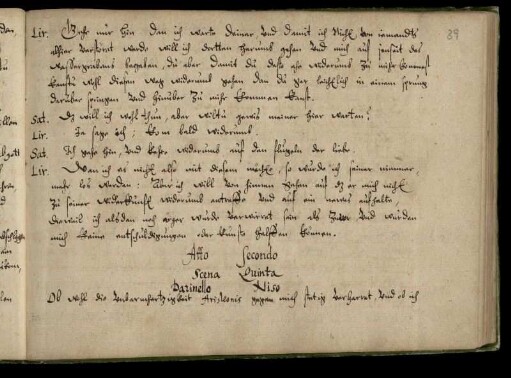 89
Lir. Gehe nur hin dan ich warte deiner und damit ich nicht von iemandts
alhier verstöret werde will ich dorthen herumb gehen und mich auf jenseit des
wassergrabens begeben, du aber damit du desto ehe widerumb zu mihr kommest
kanstu wohl diesen weg widerumb gehen den du gar leichtlich in einem sprung
darüber springen und hinüber zu mihr kommen kanst.
Sat. Das will ich wohl thun, aber wiltu gewis meiner hier warten?
Lir. Ja sage ich: kom bald widerumb.
Sat. Ich gehe hin, und kehre widerumb auf den flügeln der liebe.
Lir. Wan ich es nicht also mit diesem machte, so würde ich seiner nimmer
mehr los werden: Aber ich will von hinnen gehen auf das er mich nicht
zu seiner widerkunft widerumb antreffe und auf ein neues aufhalte,
dieweil ich alsdan noch ärger würde verwirret sein als zuvor und würden
mich keine entschuldigungen oder künste helffen können.
Atto Secondo
Scena Quinta
Darinello Niso
Ob wohl die unbarmhertzigkeit gegen mich stetig verharret, und ob ich